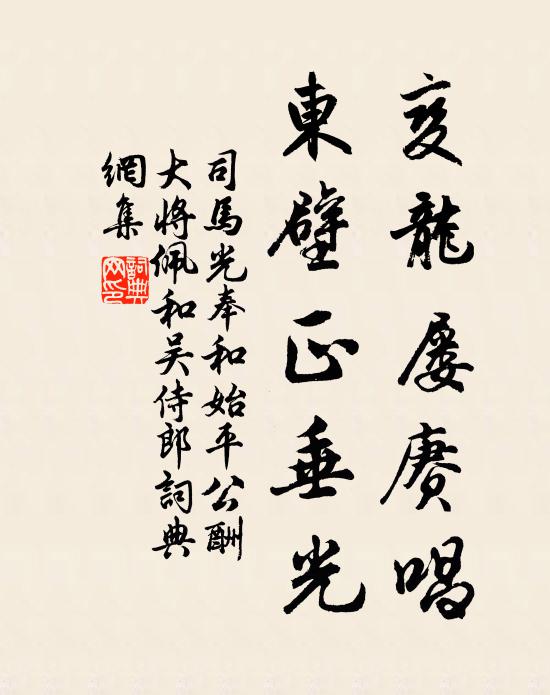 夔龍屢賡唱
東壁正垂光
司馬光奉和始平公酬
大將佩和吳侍郎詞典
網集
詞典
网印